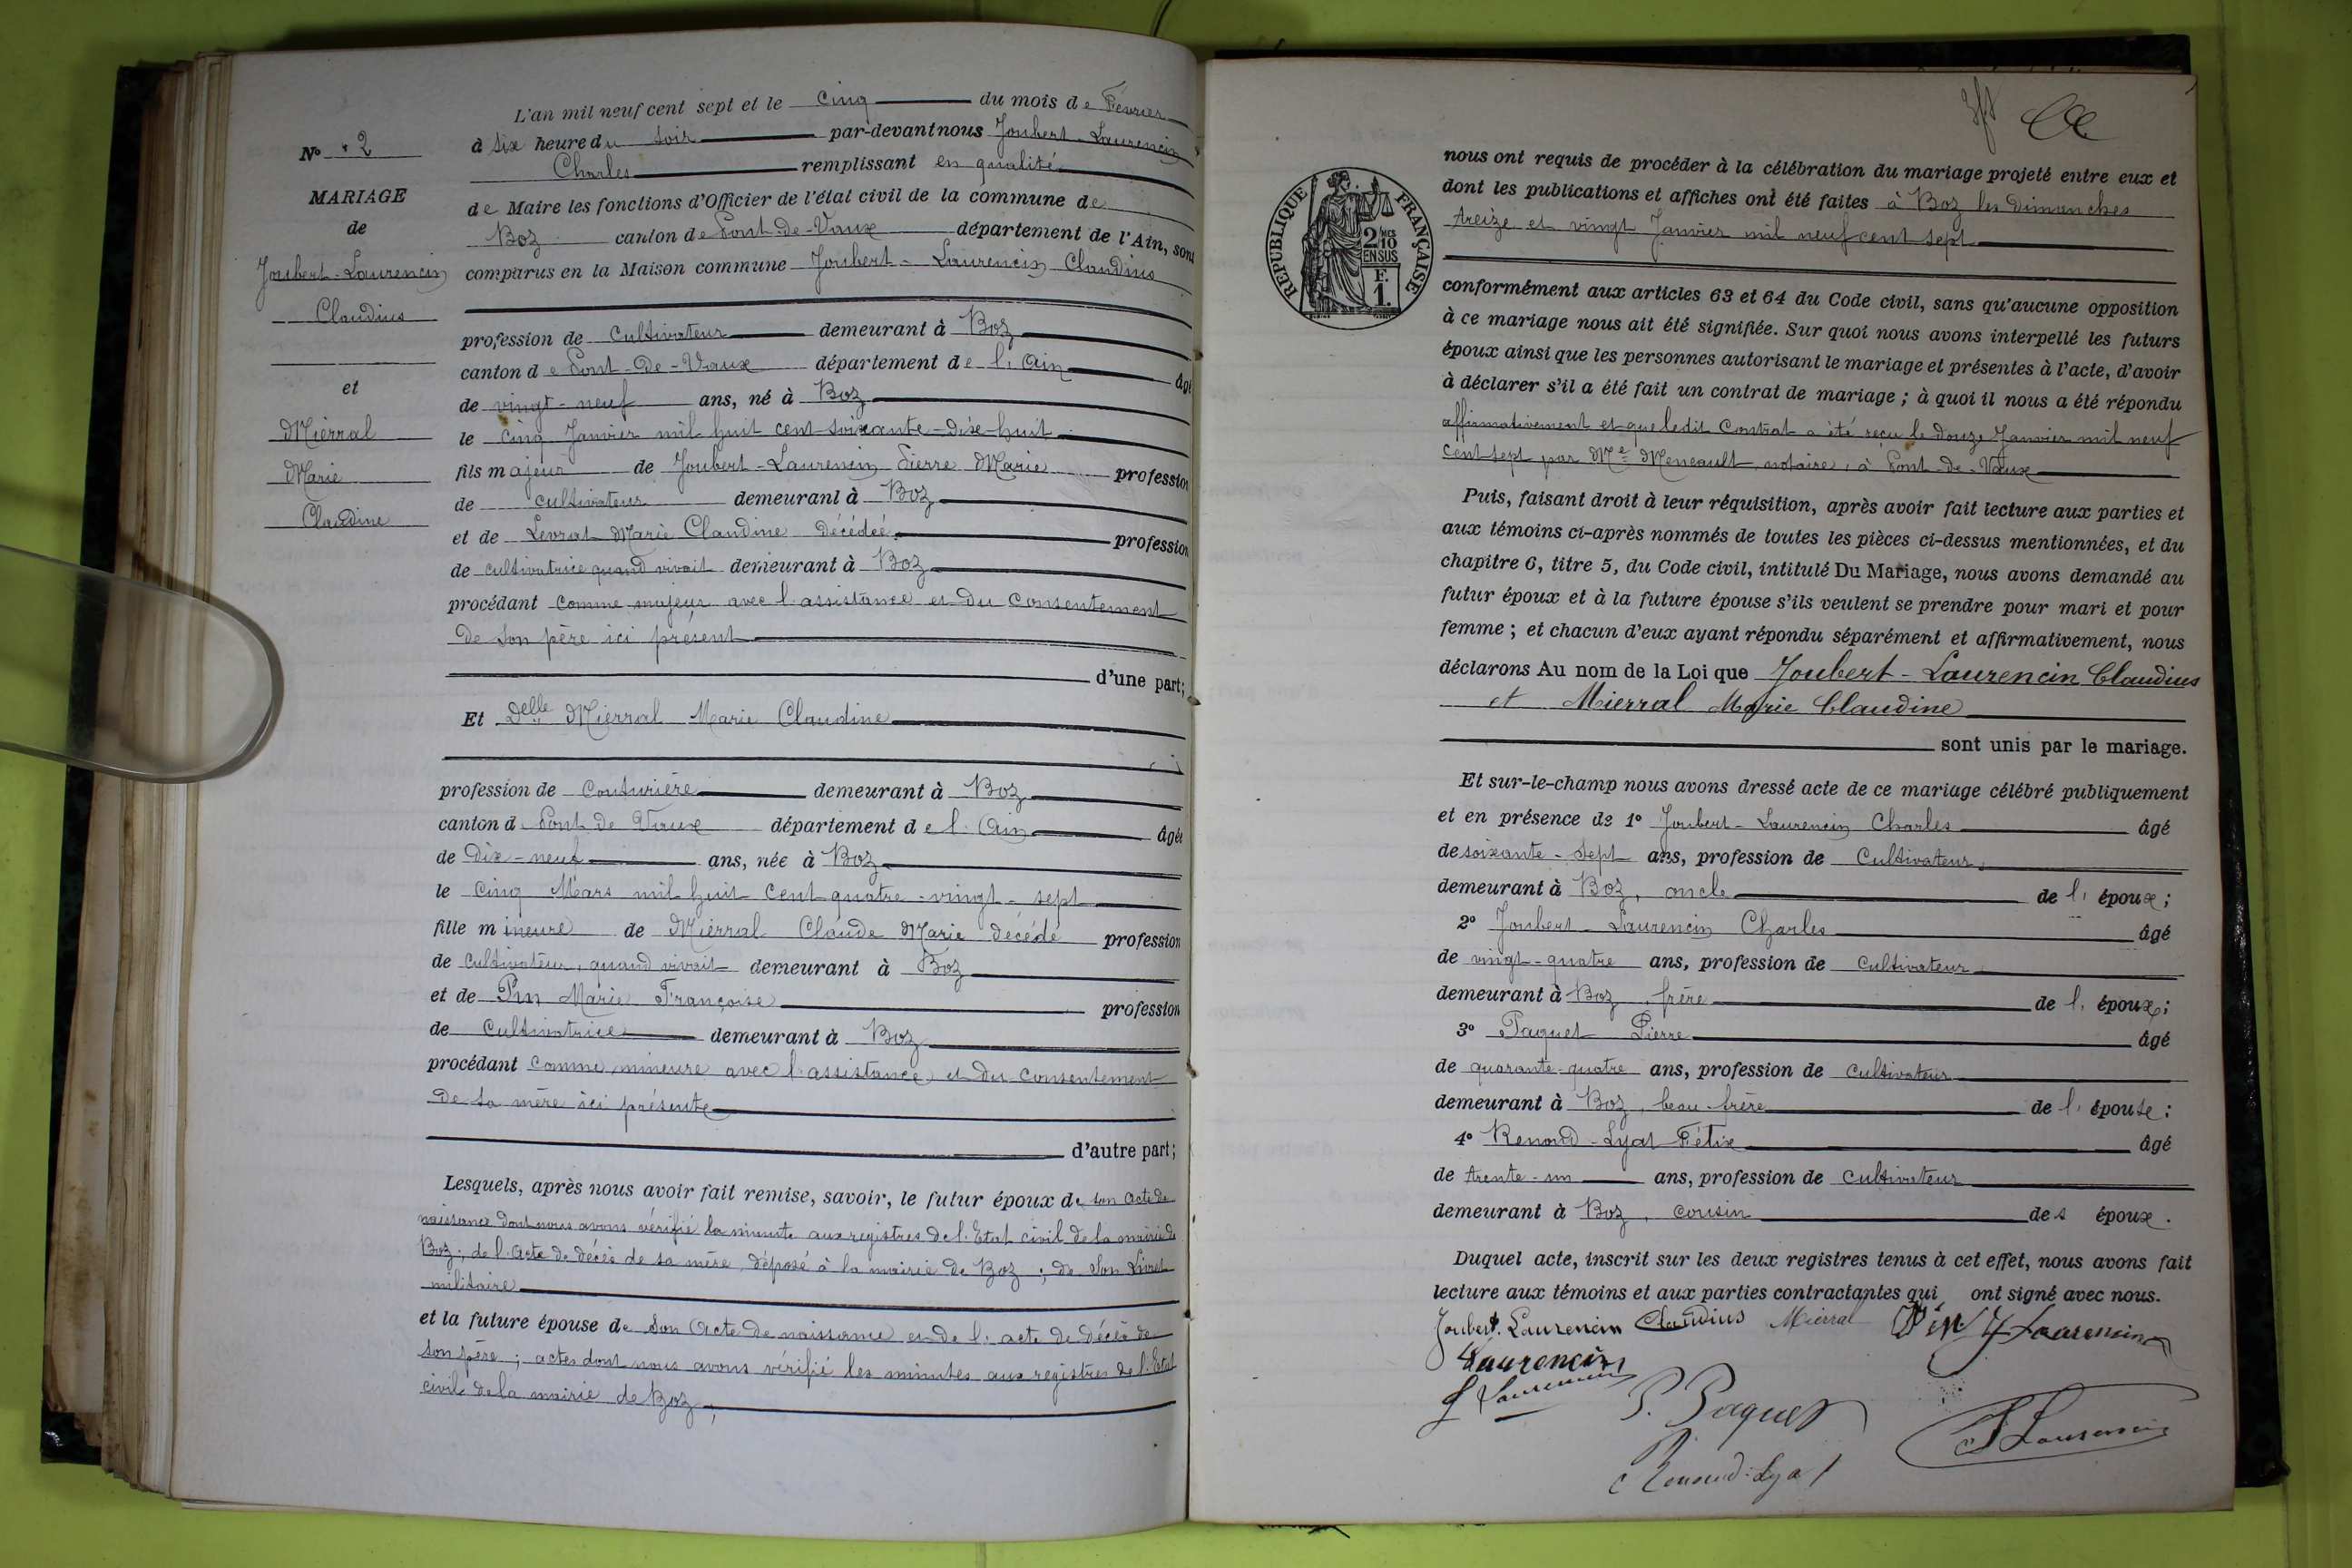 L'an mil neuf cent sept et le cinq du mois de Février
à six heure du soir par-devant nous Joubert-Laurencin
Charles remplissant en qualité
de Maire les fonctions d'Officier de l'état civil de la commune de
Boz canton de Pont-de-Vaux département de l'Ain, sont
comparus en la Maison commune Joubert-Laurencin Claudius
profession de cultivateur demeurant à Boz
canton de Pont-de-Vaux département de l'Ain âgé
de vingt-neuf ans, né à Boz
le cinq Janvier mil huit cent soixante-dix-huit
fils majeur de Joubert-Laurencin Pierre Marie profession
de cultivateur demeurant à Boz
et de Levrat Marie Claudine décédée profession
de cultivatrice quand vivait demeurant à Boz
procédant comme majeur avec l'assistance et du consentement
de son père ici présent
d'une part;
Et Delle Mierral Marie Claudine
profession de Couturière demeurant à Boz
canton d Pont de Vaux département de l'Ain âgée
de dix-neuf ans, née à Boz
le cinq Mars mil huit cent quatre-vingt-sept
fille mineure de Mierral Claude Marie décédé profession
de cultivateur, quand vivait demeurant à Boz
et de Pin Marie Françoise profession
de cultivatrice demeurant à Boz
procédant comme mineure avec l'assistance et du consentement
de sa mère ici présente
d'autre part;
Lesquels, après nous avoir fait remise, savoir, le futur époux de son acte de
naissance dont nous avons vérifié la minute aux registres de l'Etat civil de la mairie de
Boz; de l'acte de décès de sa mère, déposé à la mairie de Boz; de son Livret
militaire
et la future épouse de son acte de naissance et de l'acte de décès de
son père; actes dont nous avons vérifié les minutes aux registres de l'Etat
civil de la mairie de Boz;
N° 2
MARIAGE
de
Joubert-Laurencin
Claudius
et
Mierral
Marie
Claudine
RÉPUBLIQUE FRANÇAISE
2/10 MES
EN SUS
F.
1.
nous ont requis de procéder à la célébration du mariage projeté entre eux et
dont les publications et affiches ont été faites à Boz les dimanches
treize et vingt Janvier mil neuf cent sept
conformément aux articles 63 et 64 du Code civil, sans qu'aucune opposition
à ce mariage nous ait été signifiée. Sur quoi nous avons interpellé les futurs
époux ainsi que les personnes autorisant le mariage et présentes à l'acte, d'avoir
à déclarer s'il a été fait un contrat de mariage; à quoi il nous a été répondu
affirmativement et que ledit Contrat a été reçu le douze Janvier mil neuf
cent sept par Me Meneault notaire, à Pont-de-Vaux
Puis, faisant droit à leur réquisition, après avoir fait lecture aux parties et
aux témoins ci-après nommés de toutes les pièces ci-dessus mentionnées, et du
chapitre 6, titre 5, du Code civil, intitulé Du Mariage, nous avons demandé au
futur époux et à la future épouse s'ils veulent se prendre pour mari et pour
femme; et chacun d'eux ayant répondu séparément et affirmativement, nous
déclarons Au nom de la Loi que Joubert-Laurencin Claudius
et Mierral Marie Claudine
sont unis par le mariage.
Et sur-le-champ nous avons dressé acte de ce mariage célébré publiquement
et en présence de 1° Joubert-Laurencin Charles âgé
de soixante-sept ans, profession de Cultivateur,
demeurant à Boz, oncle de l'époux;
2° Joubert-Laurencin Charles âgé
de vingt-quatre ans, profession de cultivateur
demeurant à Boz, frère de l'époux;
3° Paquet Pierre âgé
de quarante-quatre ans, profession de cultivateur
demeurant à Boz, beau-frère de l'épouse;
4° Renoud-Lyat Félix âgé
de trente-un ans, profession de cultivateur
demeurant à Boz, cousin des époux.
Duquel acte, inscrit sur les deux registres tenus à cet effet, nous avons fait
lecture aux témoins et aux parties contractantes qui ont signé avec nous.
Joubert. Laurencin Claudius Mierral Pin J Laurencin
Laurencin
J Laurencin P. Paquet
Renoud-Lyat